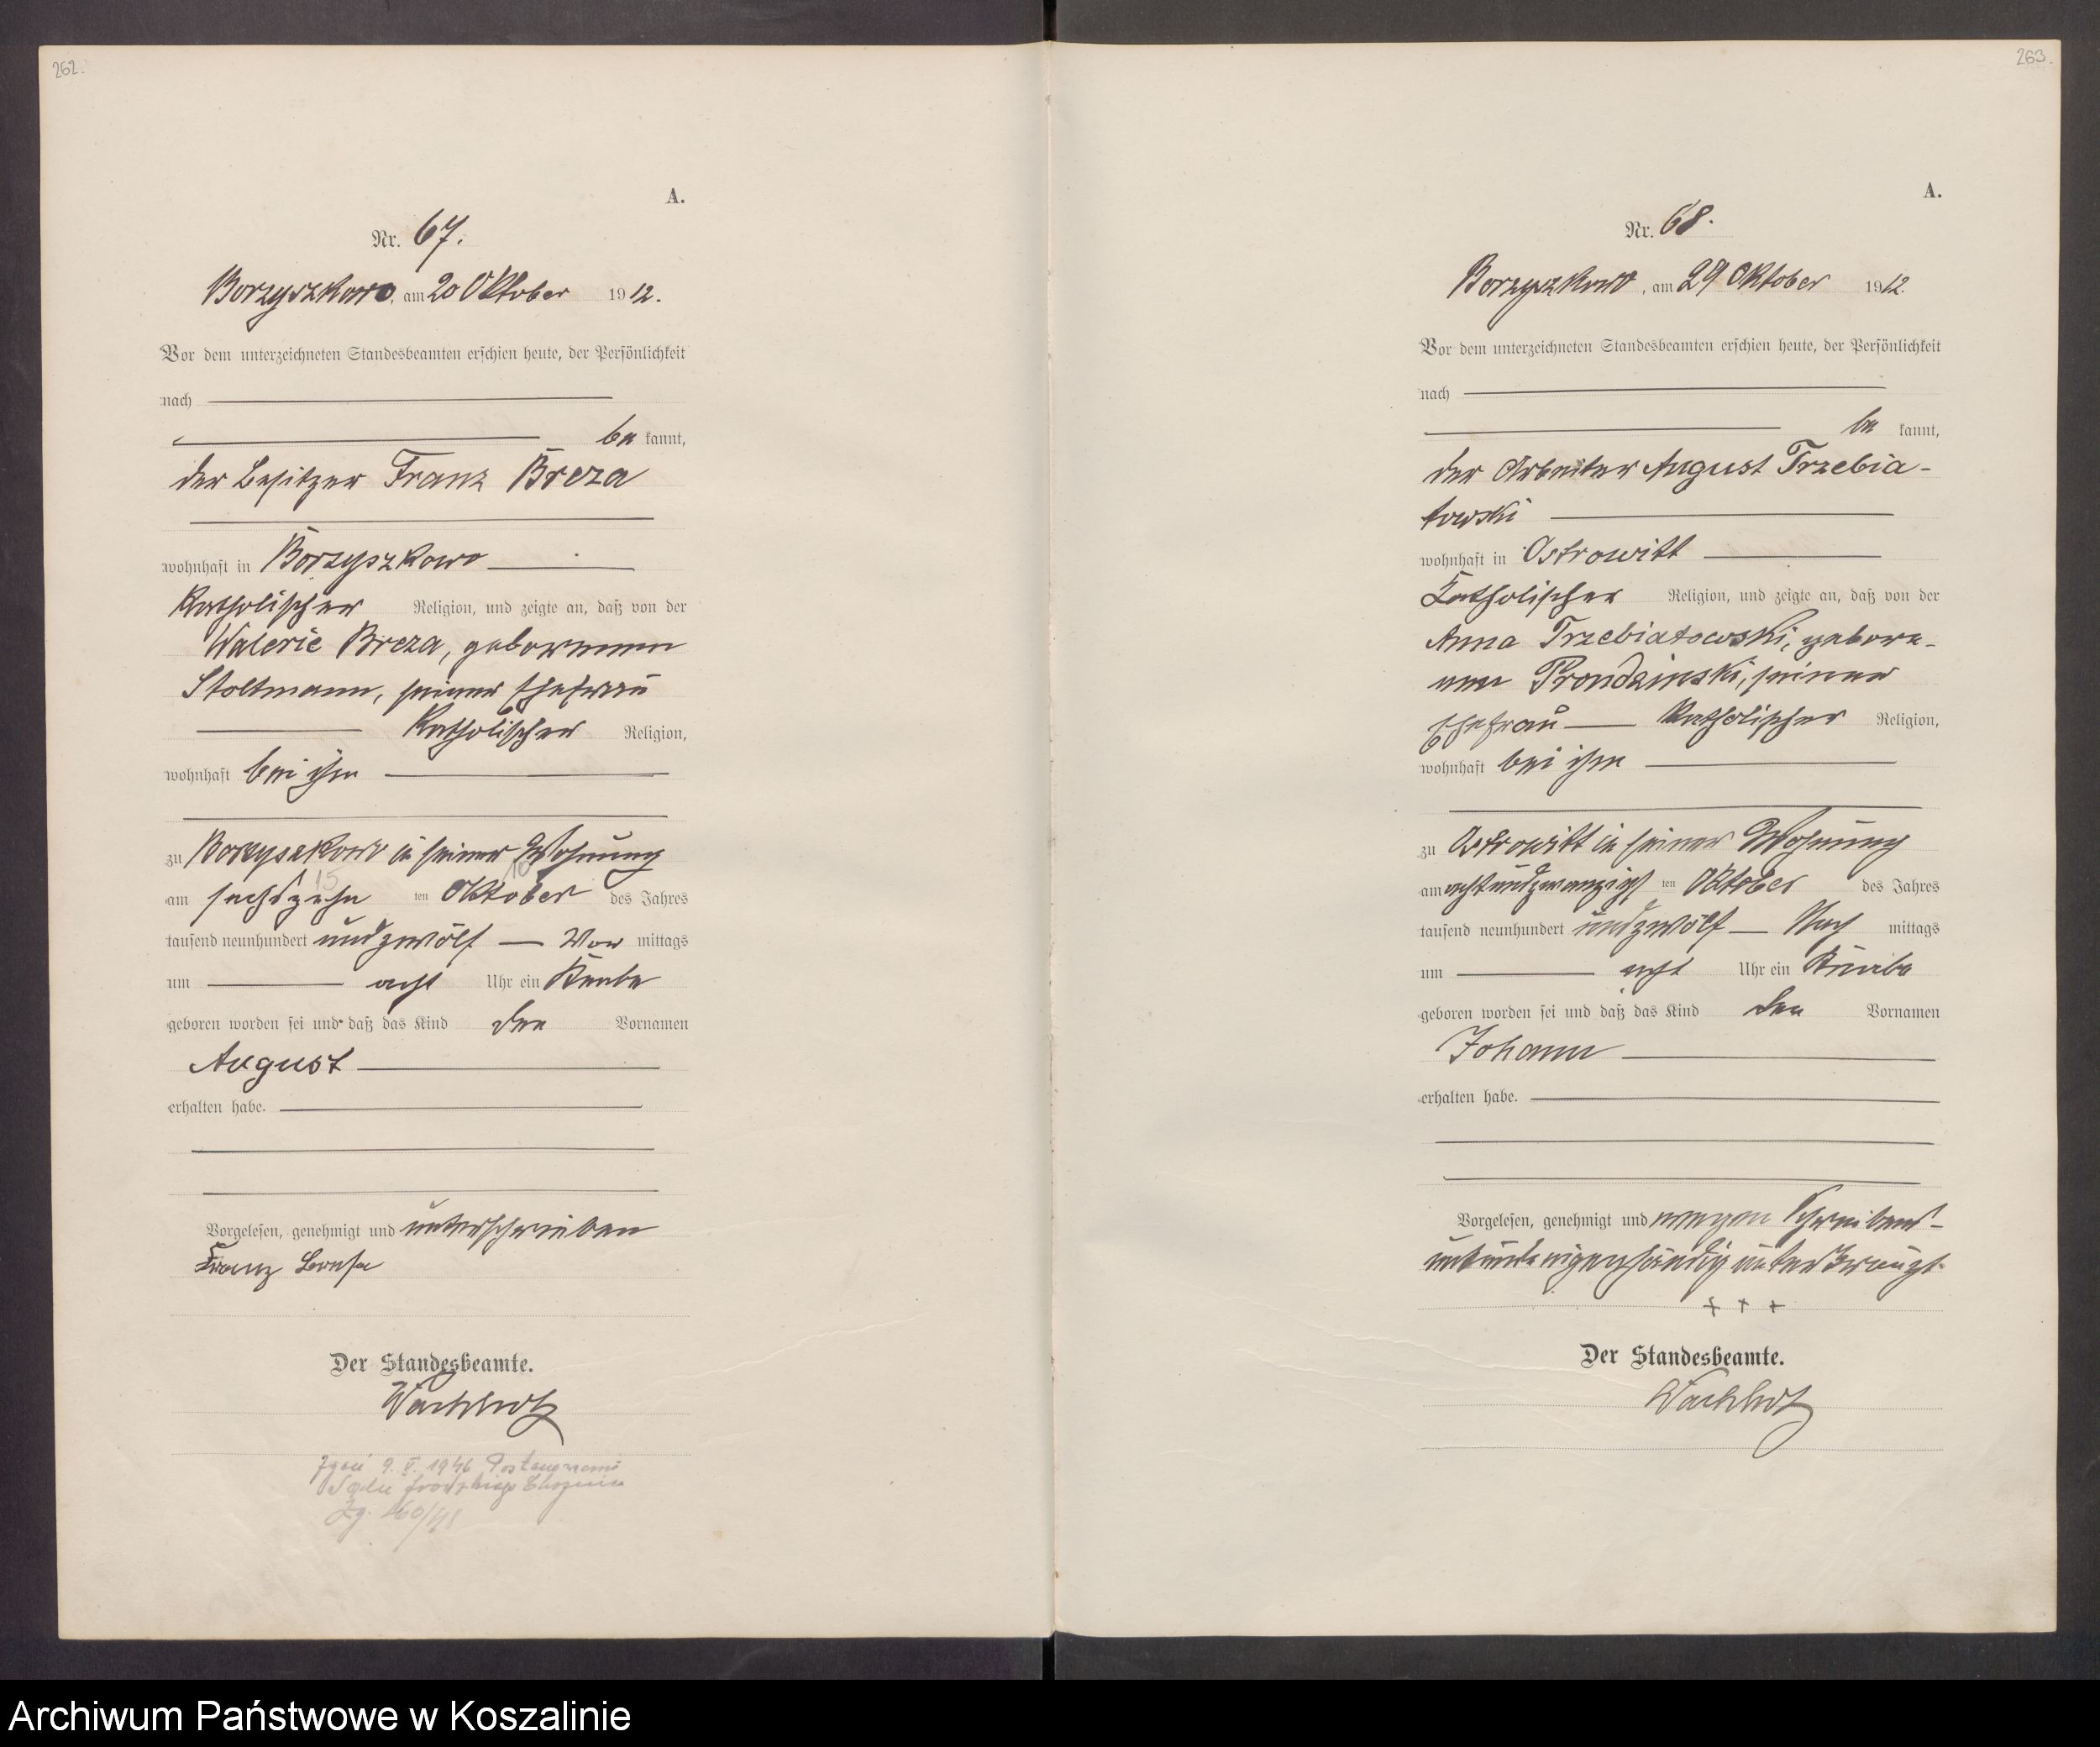 262.
A.
Nr. 67.
Borzyszkowo, am 20 Oktober 1912.
Vor dem unterzeichneten Standesbeamten erschien heute, der Persönlichkeit
nach
be kannt,
der Besitzer Franz Breza
wohnhaft in Borzyszkowo
Katholischer Religion, und zeigte an, daß von der
Walerie Breza, geborenen
Stoltmann, seiner Ehefrau
Katholischer Religion,
wohnhaft bei ihm
zu Borzyszkowo in seiner Wohnung
15 10
am sechszehn ten Oktober des Jahres
tausend neunhundert und zwölf Vor mittags
um acht Uhr ein Knabe
geboren worden sei und daß das Kind den Vornamen
August
erhalten habe.
Vorgelesen, genehmigt und unterschrieben
Franz
Der Standesbeamte.
9. V. 1946
Sądu Grodzkiego
Zg.
263.
A.
Nr. 68.
Borzyszkowo, am 29 Oktober 1912.
Vor dem unterzeichneten Standesbeamten erschien heute, der Persönlichkeit
nach
be kannt,
der Arbeiter August Trzebia-
towski
wohnhaft in Ostrowitt
Katholischer Religion, und zeigte an, daß von der
Anna Trzebiatowski, gebore-
nen Prondzinski, seiner
Ehefrau Katholischer Religion,
wohnhaft bei ihm
zu Ostrowitt in seiner Wohnung
am achtundzwanzigs ten Oktober des Jahres
tausend neunhundert und zwölf Nach mittags
um acht Uhr ein Knabe
geboren worden sei und daß das Kind den Vornamen
Johann
erhalten habe.
Vorgelesen, genehmigt und wegen Schreibens-
unkunde eigenhändig unterkreuzt.
+ + +
Der Standesbeamte.
Archiwum Państwowe w Koszalinie